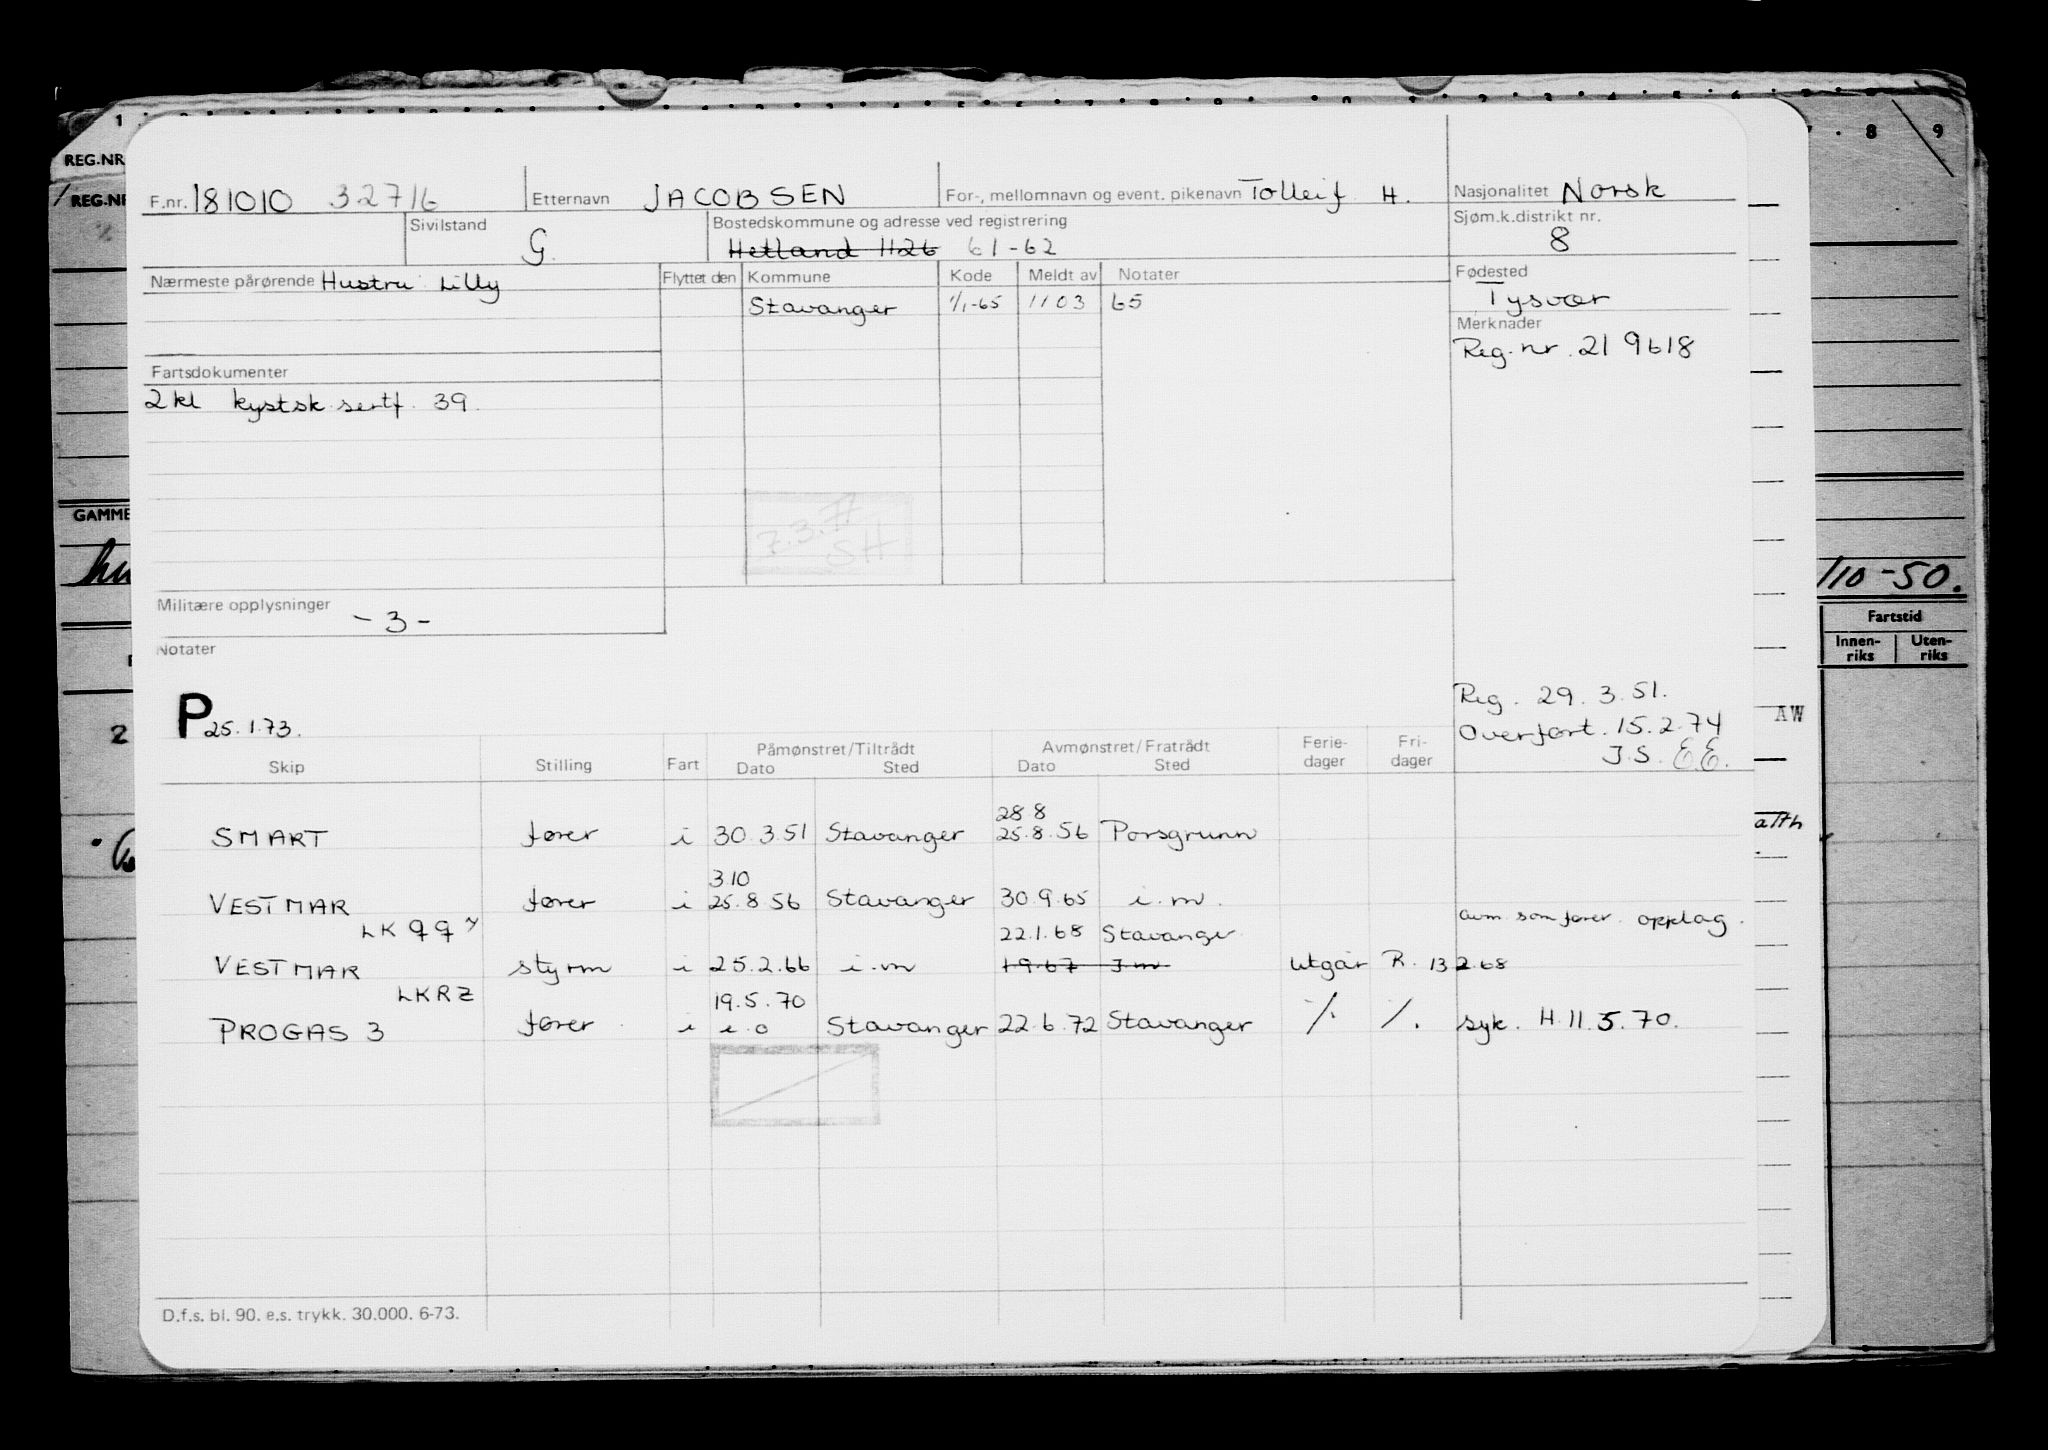 REG.NR
REG.NR
F.nr. 181010 32716 Etternavn JACOBSEN For-, mellomnavn og event. pikenavn Tolleif H. Nasjonalitet Norsk
Sivilstand G. Bostedskommune og adresse ved registrering Sjøm.k.distrikt nr.
Hetland 1126 61-62 8
Nærmeste pårørende Hustru Lilly Flyttet den Kommune Kode Meldt av Notater Fødested
Stavanger 1/1-65 1103 65 Tysvær
Merknader
Reg. nr. 219618
Fartsdokumenter
2 kl kystsk. sertf. 39.
7.3.77
SH
GAMME
/10-50.
Militære opplysninger
-3-
Fartstid
Innen-riks Uten-riks
Notater
P 25.1.73.
Reg. 29.3.51.
Overført. 15.2.74
J.S. E.E.
AW
Påmønstret/Tiltrådt Avmønstret/Fratrådt Ferie- Fri-
Skip Stilling Fart Dato Sted Dato Sted dager dager
28 8
SMART fører i 30.3.51 Stavanger 25.8.56 Porsgrunn
3 10
VESTMAR fører i 25.8.56 Stavanger 30.9.65 i.m. avm som fører. opplag.
LK QQ 22.1.68 Stavanger
VESTMAR styrm i 25.2.66 i.m 1 9 67 I.m utgår R. 13 2.68
LKRZ 19.5.70
PROGAS 3 fører i i.o Stavanger 22.6.72 Stavanger ./. ./. syk. H.11.5.70.
D.f.s. bl. 90. e.s. trykk. 30.000. 6-73.